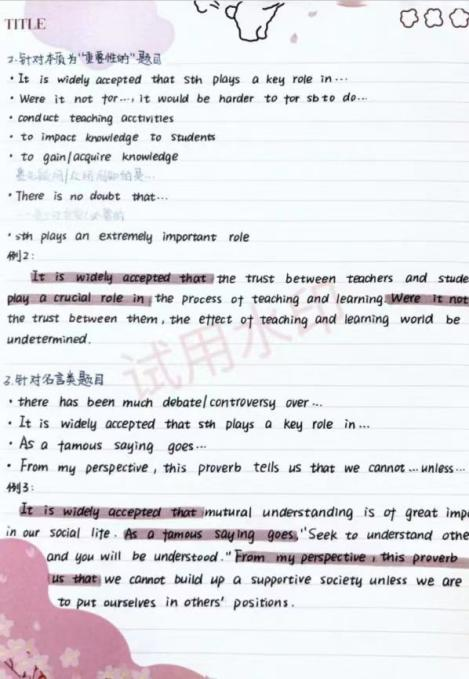 TITLE
2.针对本质为"重要性的"题目
· It is widely accepted that sth plays a key role in…
· Were it not for…, it would be harder to for sb to do…
· conduct teaching acctivities
· to impact knowledge to students
· to gain/acquire knowledge
· There is no doubt that…
· sth plays an extremely important role
例2:
It is widely accepted that the trust between teachers and stude
play a crucial role in the process of teaching and learning. Were it not
the trust between them, the effect of teaching and learning world be
undetermined.
试用水印
3.针对名言类题目
· there has been much debate/controversy over…
· It is widely accepted that sth plays a key role in…
· As a famous saying goes…
· From my perspective, this proverb tells us that we cannot…unless…
例3:
It is widely accepted that mutural understanding is of great impo
in our social life. As a famous saying goes, "Seek to understand othe
and you will be understood." From my perspective, this proverb
us that we cannot build up a supportive society unless we are
to put ourselves in others' positions.